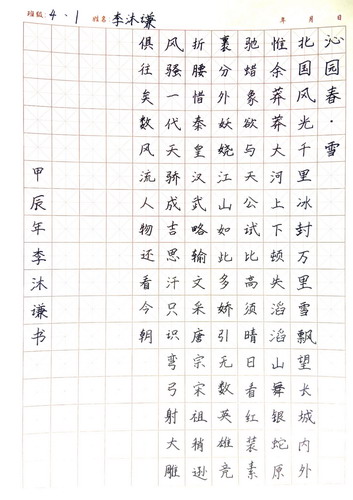 班级: 4·1 姓名: 李沐谦 年 月 日
沁园春·雪
北国风光千里冰封万里雪飘望长城内外
惟余莽莽大河上下顿失滔滔山舞银蛇原
驰蜡象欲与天公试比高须晴日看红装素
裹分外妖娆江山如此多娇引无数英雄竞
折腰惜秦皇汉武略输文采唐宗宋祖稍逊
风骚一代天骄成吉思汗只识弯弓射大雕
俱往矣数风流人物还看今朝
甲辰年李沐谦书